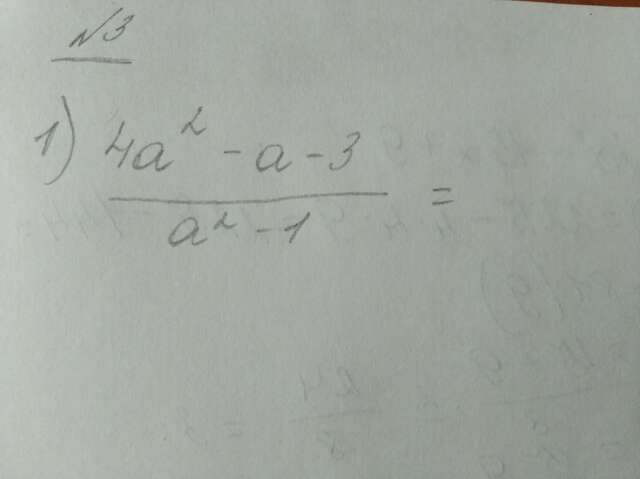 №3
1) 4a² - a - 3
a² - 1 =